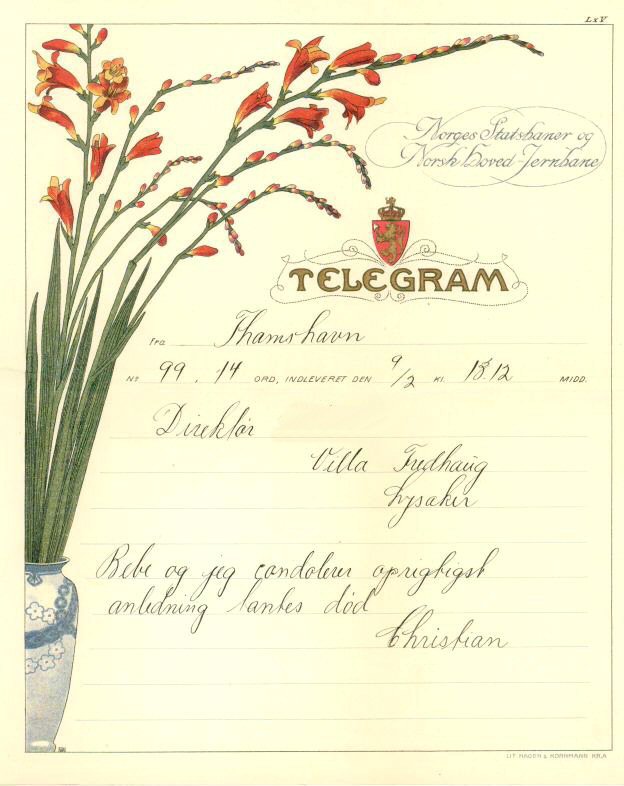 LxV
Norges Statsbaner og
Norsk Hoved-Jernbane
TELEGRAM
Fra Thamshavn
No 99. 14 ORD, INDLEVERET DEN 9/2 Kl. 12 MIDD.
Direktør
Villa Fredhaug
Lysaker
Bebe og jeg condolerer oprigtigst
anledning tantes død
Christian
LIT HAGEN & KORNMANN KR.A